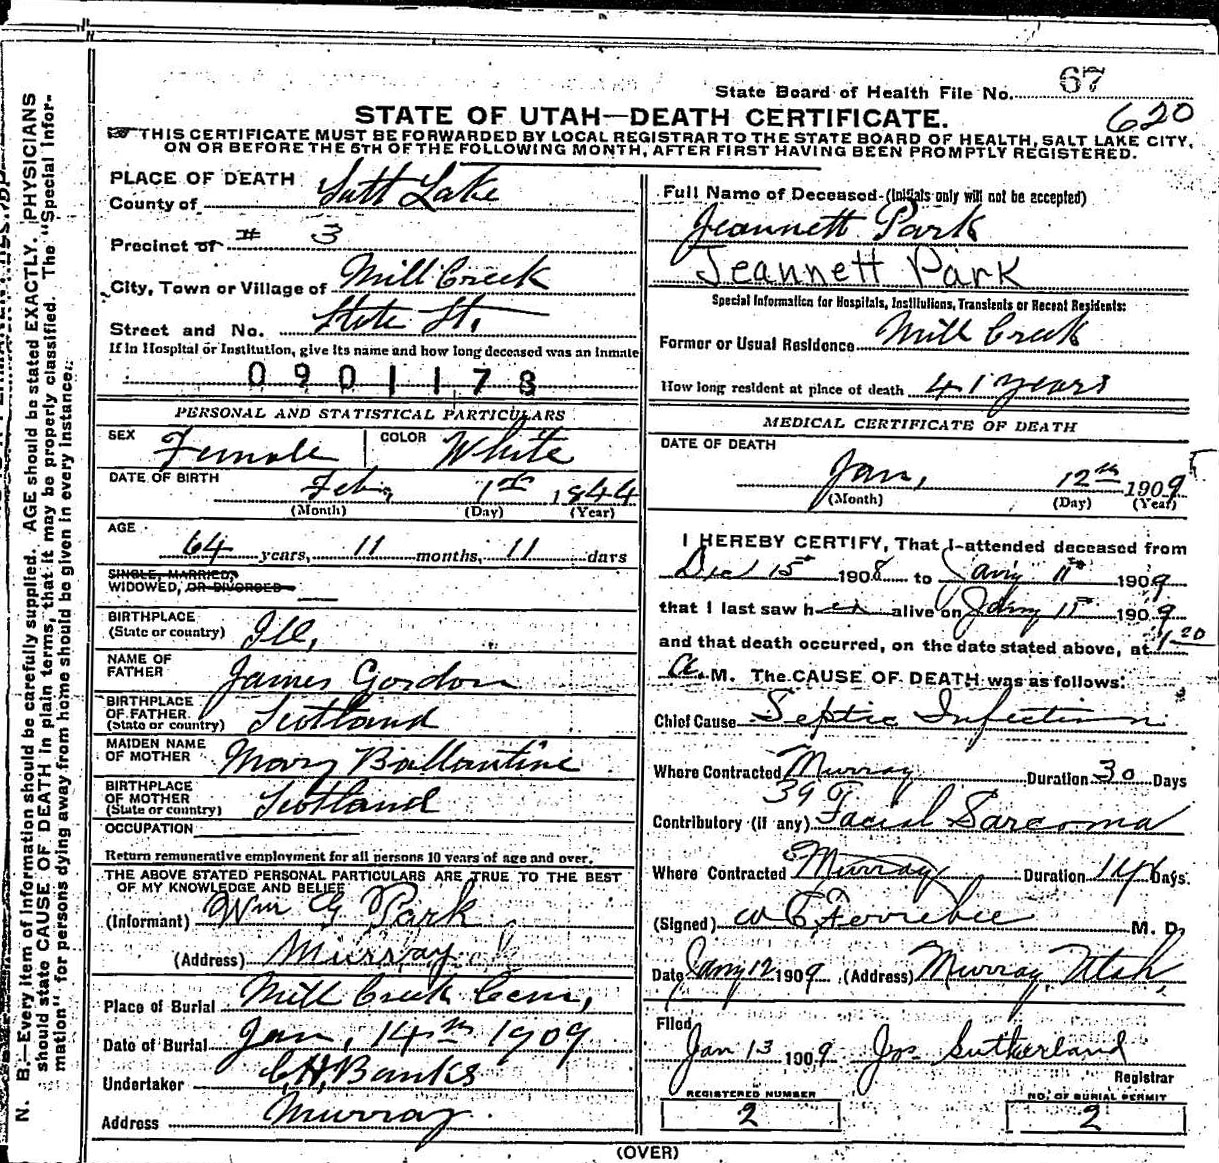 State Board of Health File No. 67
620
STATE OF UTAH—DEATH CERTIFICATE.
THIS CERTIFICATE MUST BE FORWARDED BY LOCAL REGISTRAR TO THE STATE BOARD OF HEALTH, SALT LAKE CITY,
ON OR BEFORE THE 5TH OF THE FOLLOWING MONTH, AFTER FIRST HAVING BEEN PROMPTLY REGISTERED.
PLACE OF DEATH
County of Salt Lake
Precinct or # 3
City, Town or Village of Mill Creek
Street and No. State St.
If in Hospital or Institution, give its name and how long deceased was an inmate
0901178
PERSONAL AND STATISTICAL PARTICULARS
SEX Female COLOR White
DATE OF BIRTH Feb, 1st 1844
(Month) (Day) (Year)
AGE
64 years, 11 months, 11 days
SINGLE, MARRIED,
WIDOWED, OR DIVORCED
BIRTHPLACE
(State or country) Ill,
NAME OF
FATHER James Gordon
BIRTHPLACE
OF FATHER
(State or country) Scotland
MAIDEN NAME
OF MOTHER Mary Ballantine
BIRTHPLACE
OF MOTHER
(State or country) Scotland
OCCUPATION
Return remunerative employment for all persons 10 years of age and over.
THE ABOVE STATED PERSONAL PARTICULARS ARE TRUE TO THE BEST
OF MY KNOWLEDGE AND BELIEF
(Informant) Wm G Park
(Address) Murray
Place of Burial Mill Creek Cem,
Date of Burial Jan, 14th 1909
Undertaker C.H. Banks
Address Murray.
Full Name of Deceased-(Initials only will not be accepted)
Jeannett Park
Jeannett Park
Special Information for Hospitals, Institutions, Transients or Recent Residents:
Former or Usual Residence Mill Creek
How long resident at place of death 41 years
MEDICAL CERTIFICATE OF DEATH
DATE OF DEATH
Jan, 12th 1909
(Month) (Day) (Year)
I HEREBY CERTIFY, That I attended deceased from
Dec 15th 1908 to Jany 11th 1909
that I last saw her alive on Jany 11th 1909
and that death occurred, on the date stated above, at 1-20
a. M. The CAUSE OF DEATH was as follows:
Chief Cause Septic Infection
Where Contracted Murray Duration 30 Days
39
Contributory (if any) Facial Sarcoma
Where Contracted Murray Duration Days.
(Signed) W C Ferrebee M. D.
Date Jany 12 1909 (Address) Murray, Utah,
Filed
Jan 13 1909 Jos Sutherland
Registrar
REGISTERED NUMBER
2
NO. OF BURIAL PERMIT
2
(OVER)
N. B.—Every item of information should be carefully supplied. AGE should be stated EXACTLY. PHYSICIANS
should state CAUSE OF DEATH in plain terms, that it may be properly classified. The "Special Infor-
mation" for persons dying away from home should be given in every instance.